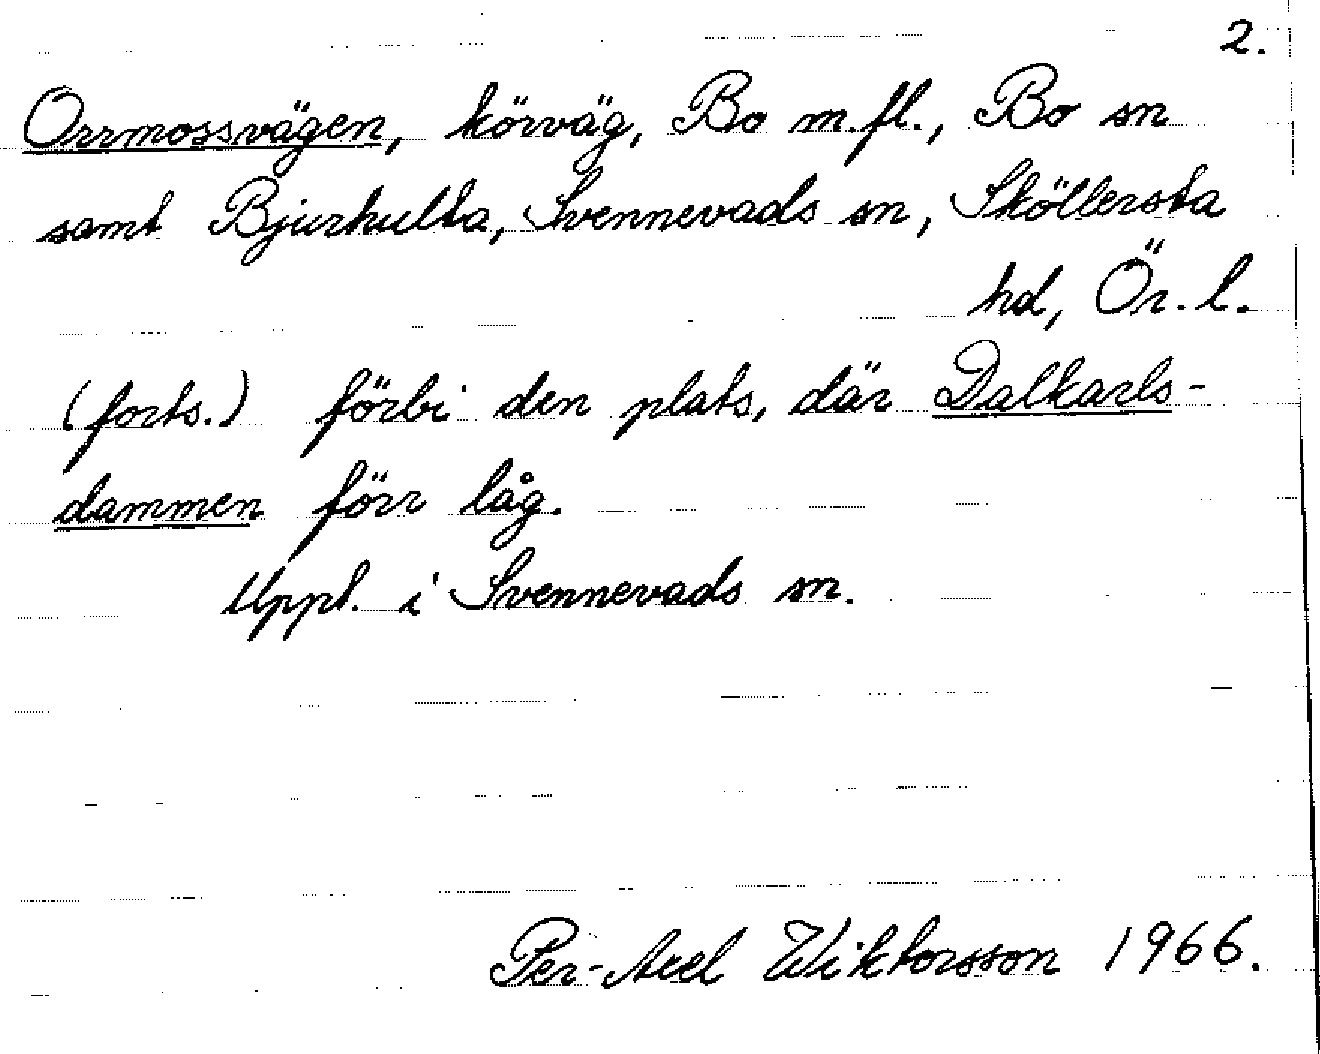 2.
Orrmossvägen, körväg, Bo m.fl., Bo sn
samt Bjurhulta, Svennevads sn, Sköllersta
hd, Ör. l.
(forts.) förbi den plats, där Dalkarls-
dammen förr låg.
Uppt. i Svennevads sn.
Per-Axel Wiktorsson 1966.